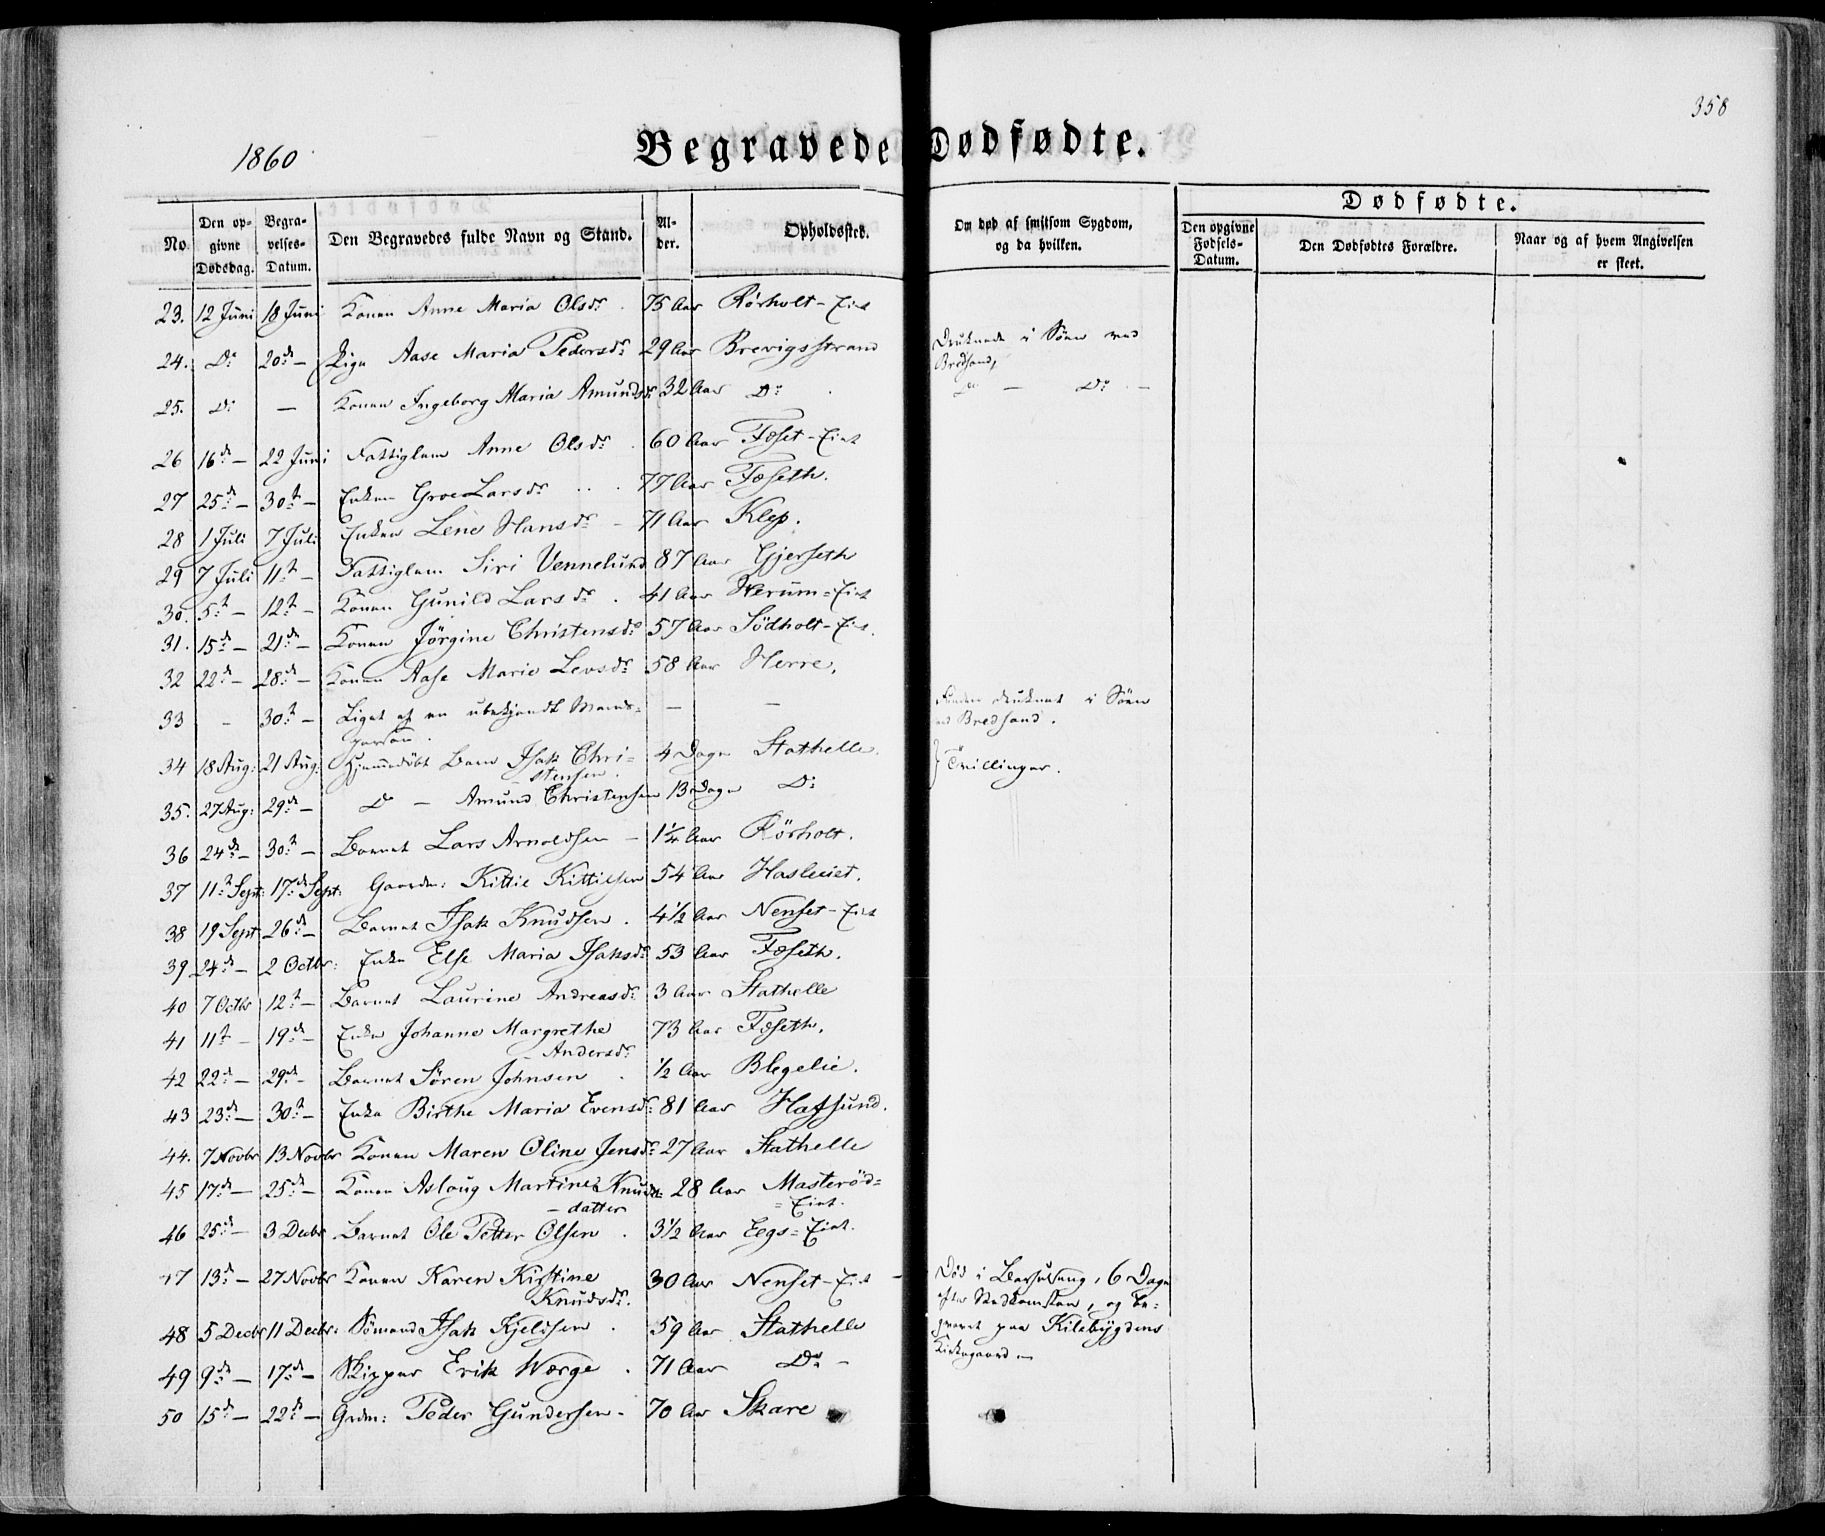 358
1860
Begravede Dødfødte.
Dødfødte.
No. Den opgivne Dødsdag. Begravelses-Datum. Den Begravedes fulde Navn og Stand. Alder. Opholdssted. Om død af smitsom Sygdom, og da hvilken. Den opgivne Fødsels-Datum. Den Dødfødtes Forældre. Naar og af hvem Angivelsen er skeet.
23. 12 Juni 18 Juni Konen Anne Maria Olsdr. 75 Aar Rörholt-Eiet
24. Do 20de — Pige Aase Maria Pedersdr 29 Aar Brevigsstrand Druknede i Söen ved
Bredsand,
25. Do — Konen Ingeborg Maria Amundsdr 32 Aar Do. Do — Do —
26 16de — 22 Juni Fattiglem Anne Olsdr. 60 Aar Foset-Eiet
27 25de — 30te — Enken Groe Larsdr . . . 77 Aar Foseth.
28 1 Juli 7 Juli Enken Lene Hansdr — 71 Aar Klep.
29 7 Juli 11te — Fattiglem Siri Vennelund 87 Aar Gjerseth
30. 5te — 12te — Konen Gunild Larsdr. 41 Aar Herum=Eiet
31. 15de — 21de — Konen Jörgine Christensdr 57 Aar Södholt-Eiet.
32 22de — 28de — Konen Aase Marie Levsdr 58 Aar Herre,
33 — 30te — Liget af en ubekjendt Mands= — — Funden druknet i Söen
person. ved Bredsand.
34 18 Aug: 21 Aug: Hjemmedöbt Barn Isak Chri= 4 Dage Stathelle. } Tvillinger.
stensen.
35. 27 Aug: 29de — Do — Amund Christensen 13 Dage Do
36 24de — 30te — Barnet Lars Arnoldsen — 1¼ Aar Rörholt.
37 11te Sept: 17de Sept: Gaardm: Kittil Kittilsen 54 Aar Hasleiet.
38 19 Sept 26de — Barnet Isak Knudsen. 4½ Aar Nenset-Eiet
39 24de — 2 Octbr: Enke Else Maria Isaksdr 53 Aar Foseth.
40 7 Octbr 12te — Barnet Laurine Andreasdr 3 Aar Stathelle
41 11te — 19de — Enke Johanne Margrethe 73 Aar Foseth.
Andersdr
42 22de — 29de — Barnet Sören Johnsen . ½ Aar Blegelie.
43 23de — 30te — Enke Birthe Maria Evensdr: 81 Aar Hafsund.
44. 7 Novbr 13 Novbr Konen Maren Oline Jensdr: 27 Aar Stathelle
45 17de — 25de — Konen Aslaug Martine Knuds= 28 Aar Masteröd=
— datter =Eiet.
46 25de — 3 Decbr Barnet Ole Petter Olsen . 3½ Aar Eegs=Eiet.
47 13de — 27 Novbr Konen Karen Kirstine 30 Aar Nenset-Eiet — Död i Barselseng, 6 Dage
Knudsdr. efter Nedkomsten, og be=
48 5 Decbr 11 Decbr: Sömand Isak Kjeldsen . 59 Aar Stathelle gravet paa Kilebygdens
49 9de — 17de — Skipper Erik Værge . 71 Aar Do — Kirkegaard —
50 15de — 22de — Grdm: Peder Gundersen — 70 Aar Skare